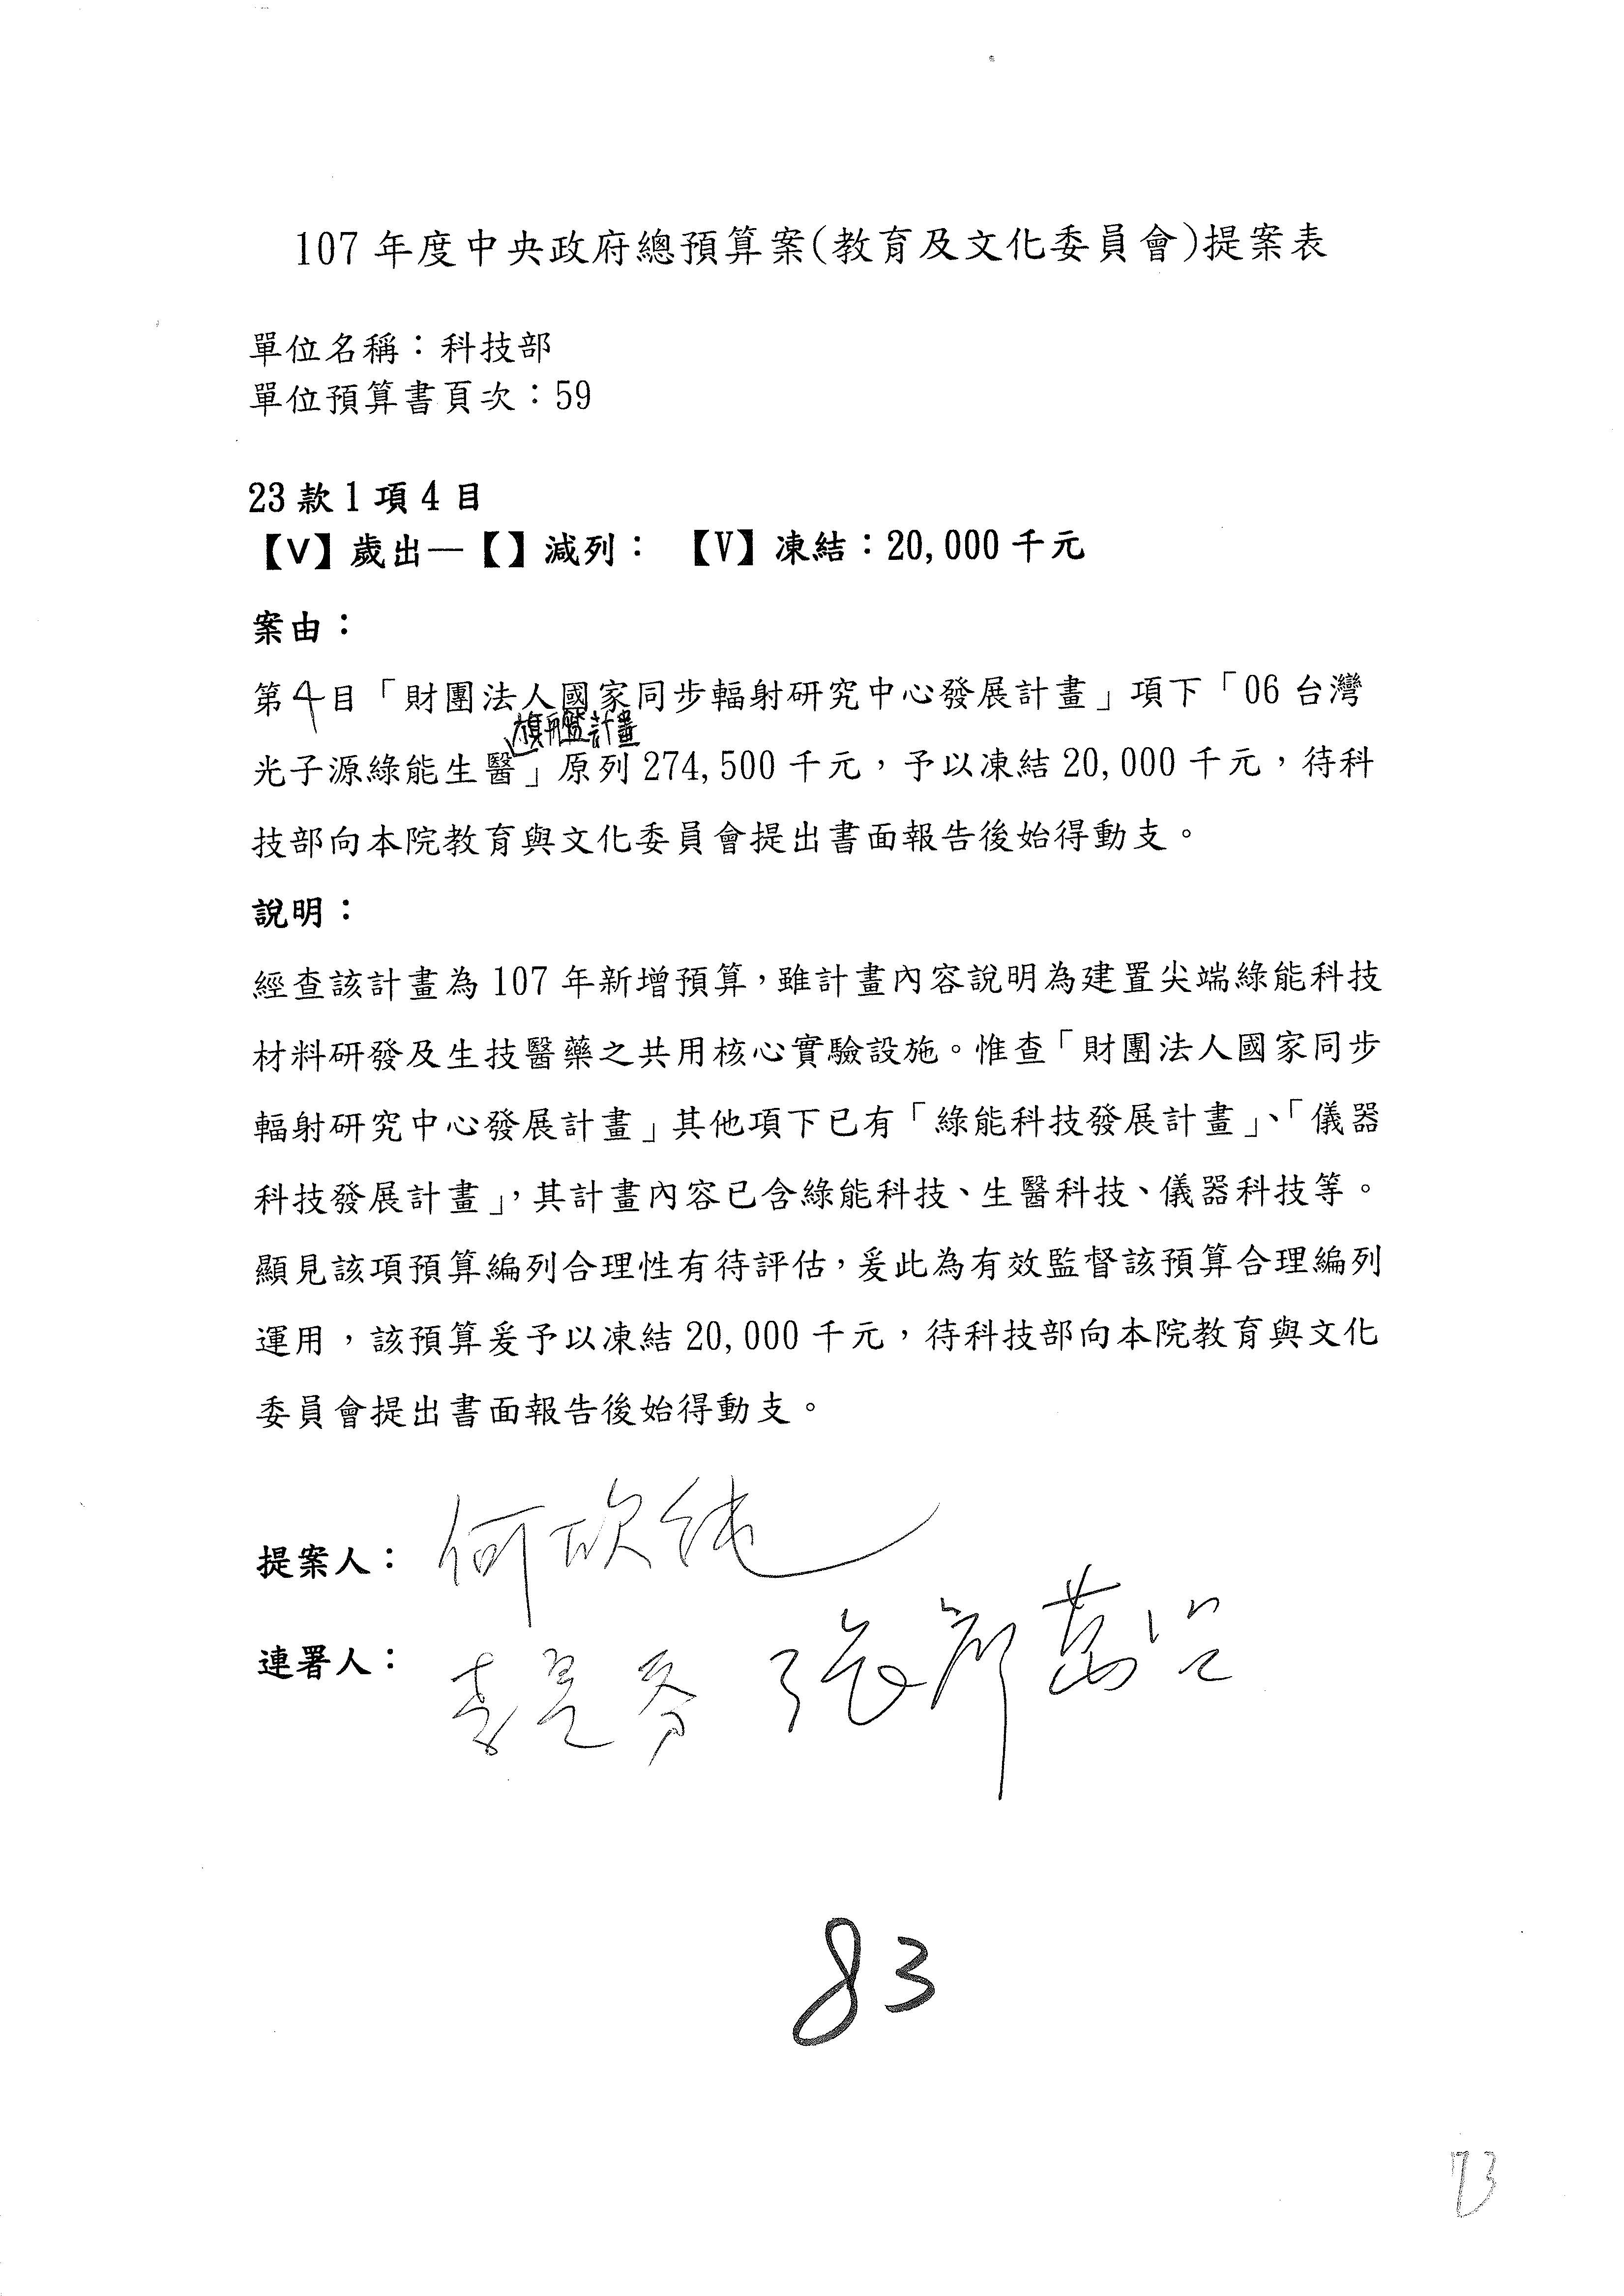 107年度中央政府總預算案(教育及文化委員會)提案表
單位名稱：科技部
單位預算書頁次：59
23款1項4目
【V】歲出—【】減列： 【V】凍結：20,000千元
案由：
第4目「財團法人國家同步輻射研究中心發展計畫」項下「06台灣
旗艦計畫
光子源綠能生醫」原列274,500千元，予以凍結20,000千元，待科
技部向本院教育與文化委員會提出書面報告後始得動支。
說明：
經查該計畫為107年新增預算，雖計畫內容說明為建置尖端綠能科技
材料研發及生技醫藥之共用核心實驗設施。惟查「財團法人國家同步
輻射研究中心發展計畫」其他項下已有「綠能科技發展計畫」、「儀器
科技發展計畫」，其計畫內容已含綠能科技、生醫科技、儀器科技等。
顯見該項預算編列合理性有待評估，爰此為有效監督該預算合理編列
運用，該預算爰予以凍結20,000千元，待科技部向本院教育與文化
委員會提出書面報告後始得動支。
提案人：何欣純
連署人：李麗芬 張廖萬堅
83
73